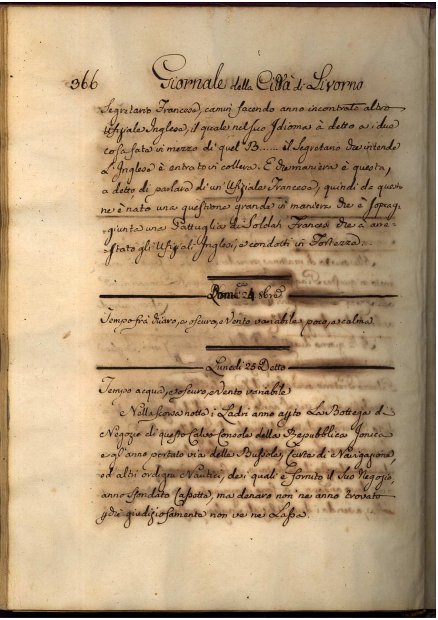 366 Giornale della Città di Livorno
Segretario Francese, camin facendo anno incontrato altro
Ufiziale Inglese, il quale nel suo Idioma à detto a i due
cosa fate in mezzo di quel B...... il Segretario che intende
L'Inglese è entrato in collera. E che maniera è questa,
a detto, di parlare di un' Ufiziale Francese, quindi da questo
ne è nato una questione grande in maniera che è soprag-
giunta una Pattuglia di Soldati Francesi che à are-
stato gli Ufiziali Inglesi, e condotti in Fortezza...
Dom:ca 24
Tempo frà chiaro, e oscuro, e Vento variabile poco, e calma.
Lunedi 25 Detto
Tempo acqua, e oscuro, e Vento variabile
e Nella scorsa notte i Ladri anno apto La Bottega di
Negozio di questo Console della Repubblica Jonica
e gl'anno portato via delle Bussole, Carte di Navigazione,
ed altri ordigni Nautici, dei quali è fornito il Suo Negozio,
anno sfondato Cassetta, ma denaro non ne anno trovato
giudiziosamente non ve ne Lassa.